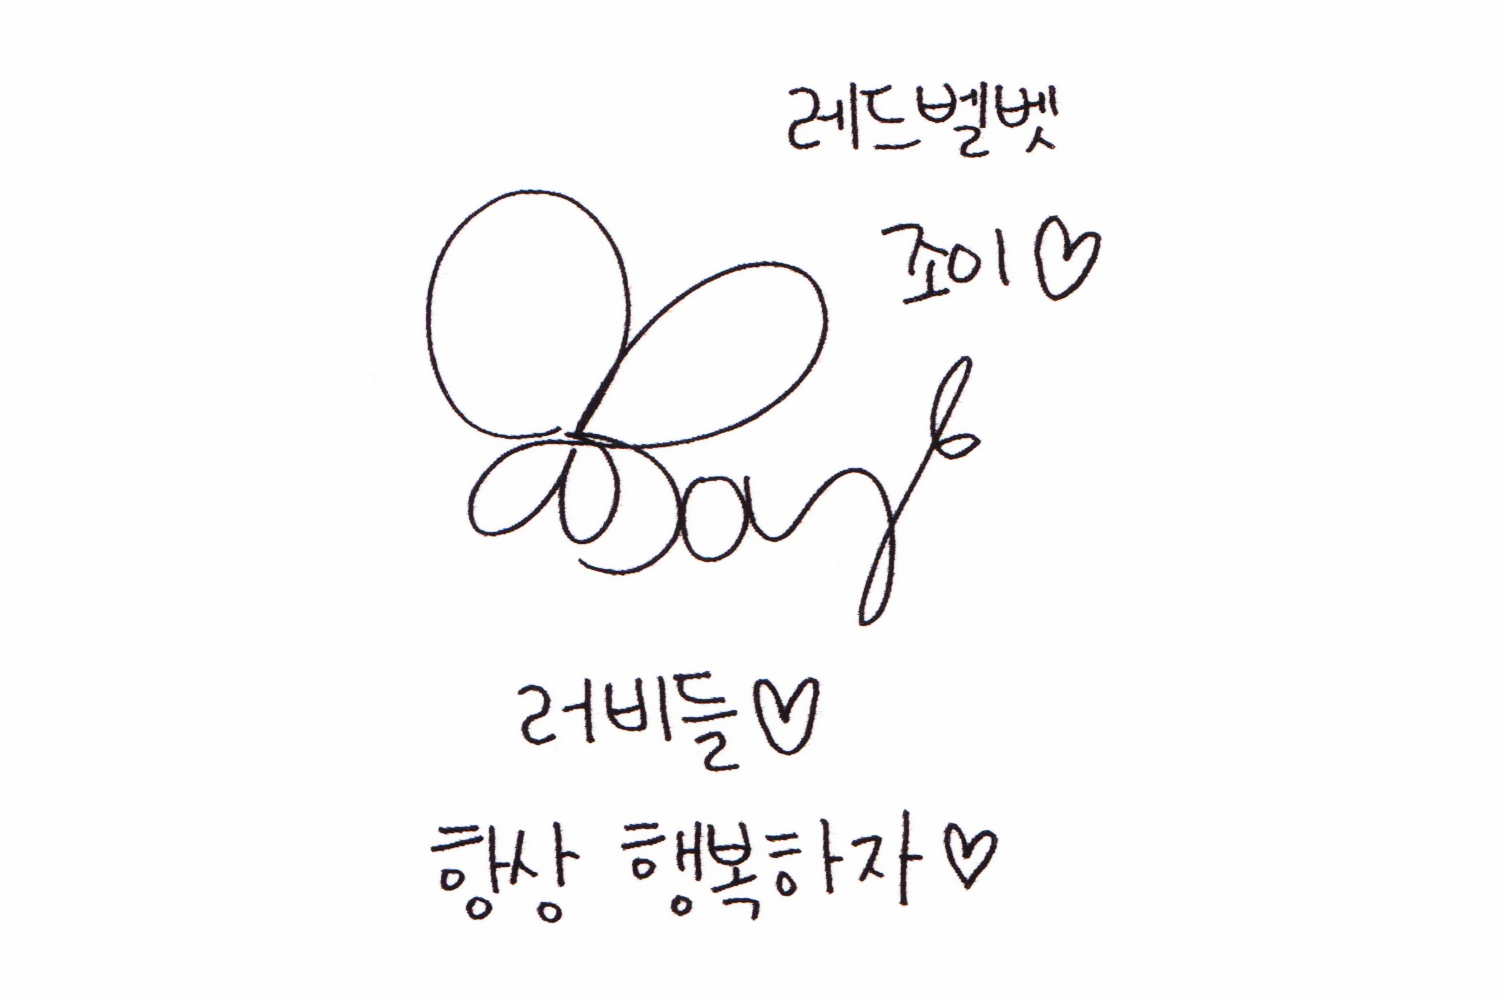 레드벨벳
조이♡
러비들♡
항상 행복하자♡